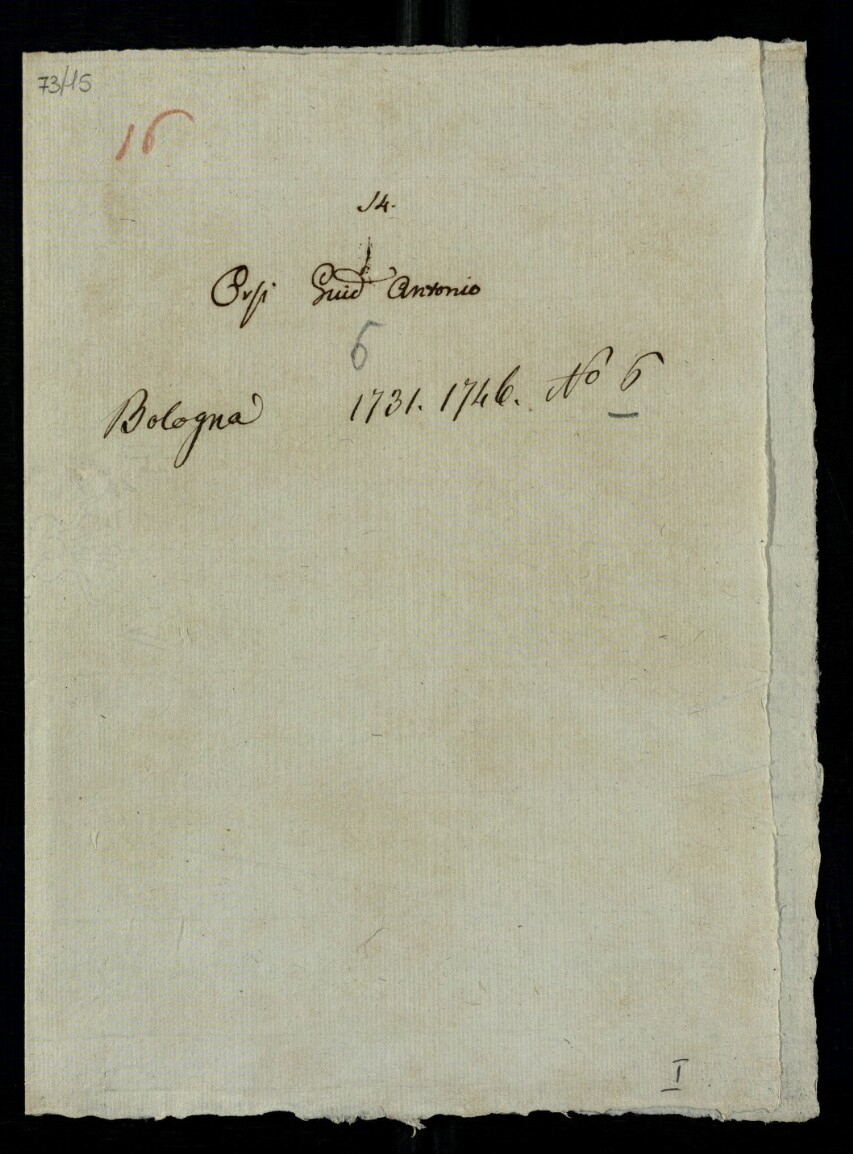 73/15
16
14.
Orsi Guid Antonio
6
Bologna 1731. 1746. No 6
I